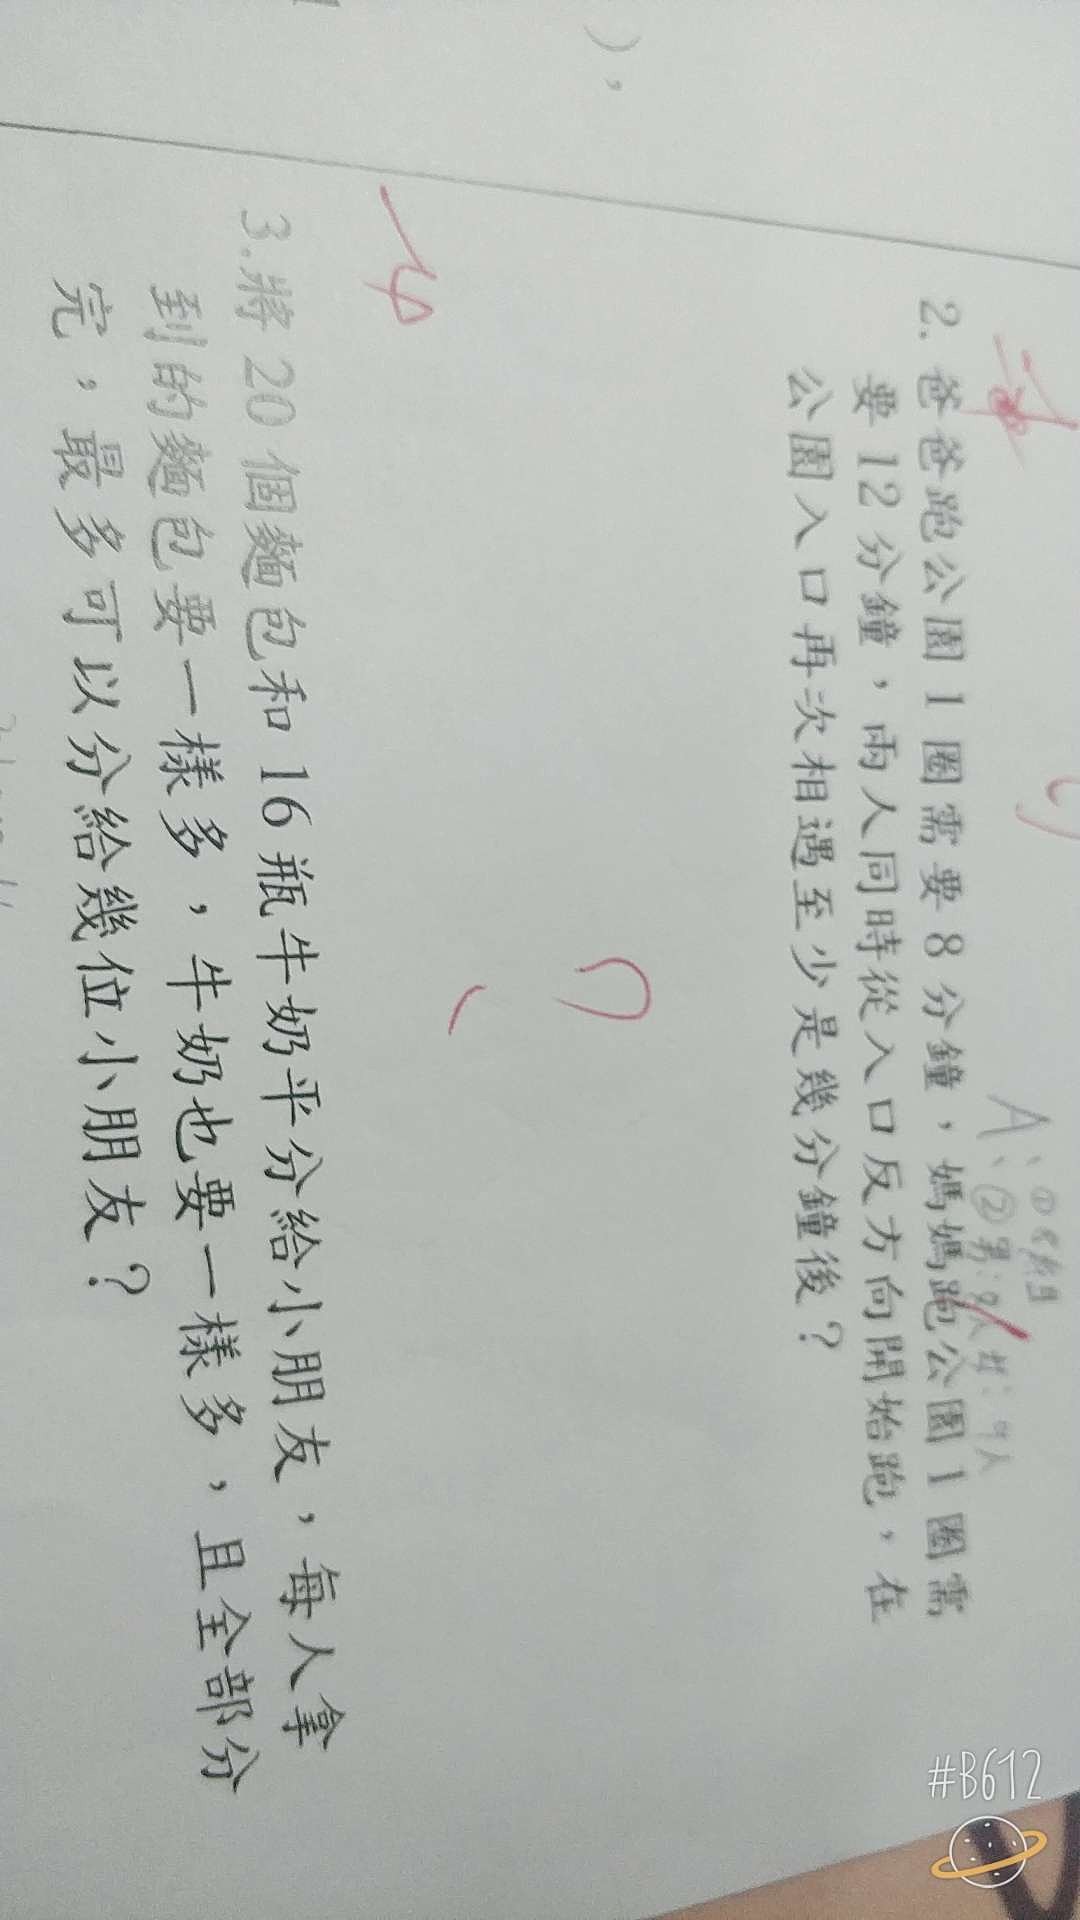 ),
A: ①8組
②男:2人 女:4人
2. 爸爸跑公園1圈需要8分鐘,媽媽跑公園1圈需
要12分鐘,兩人同時從入口反方向開始跑,在
公園入口再次相遇至少是幾分鐘後?
3.將20個麵包和16瓶牛奶平分給小朋友,每人拿
到的麵包要一樣多,牛奶也要一樣多,且全部分
完,最多可以分給幾位小朋友?
#B612